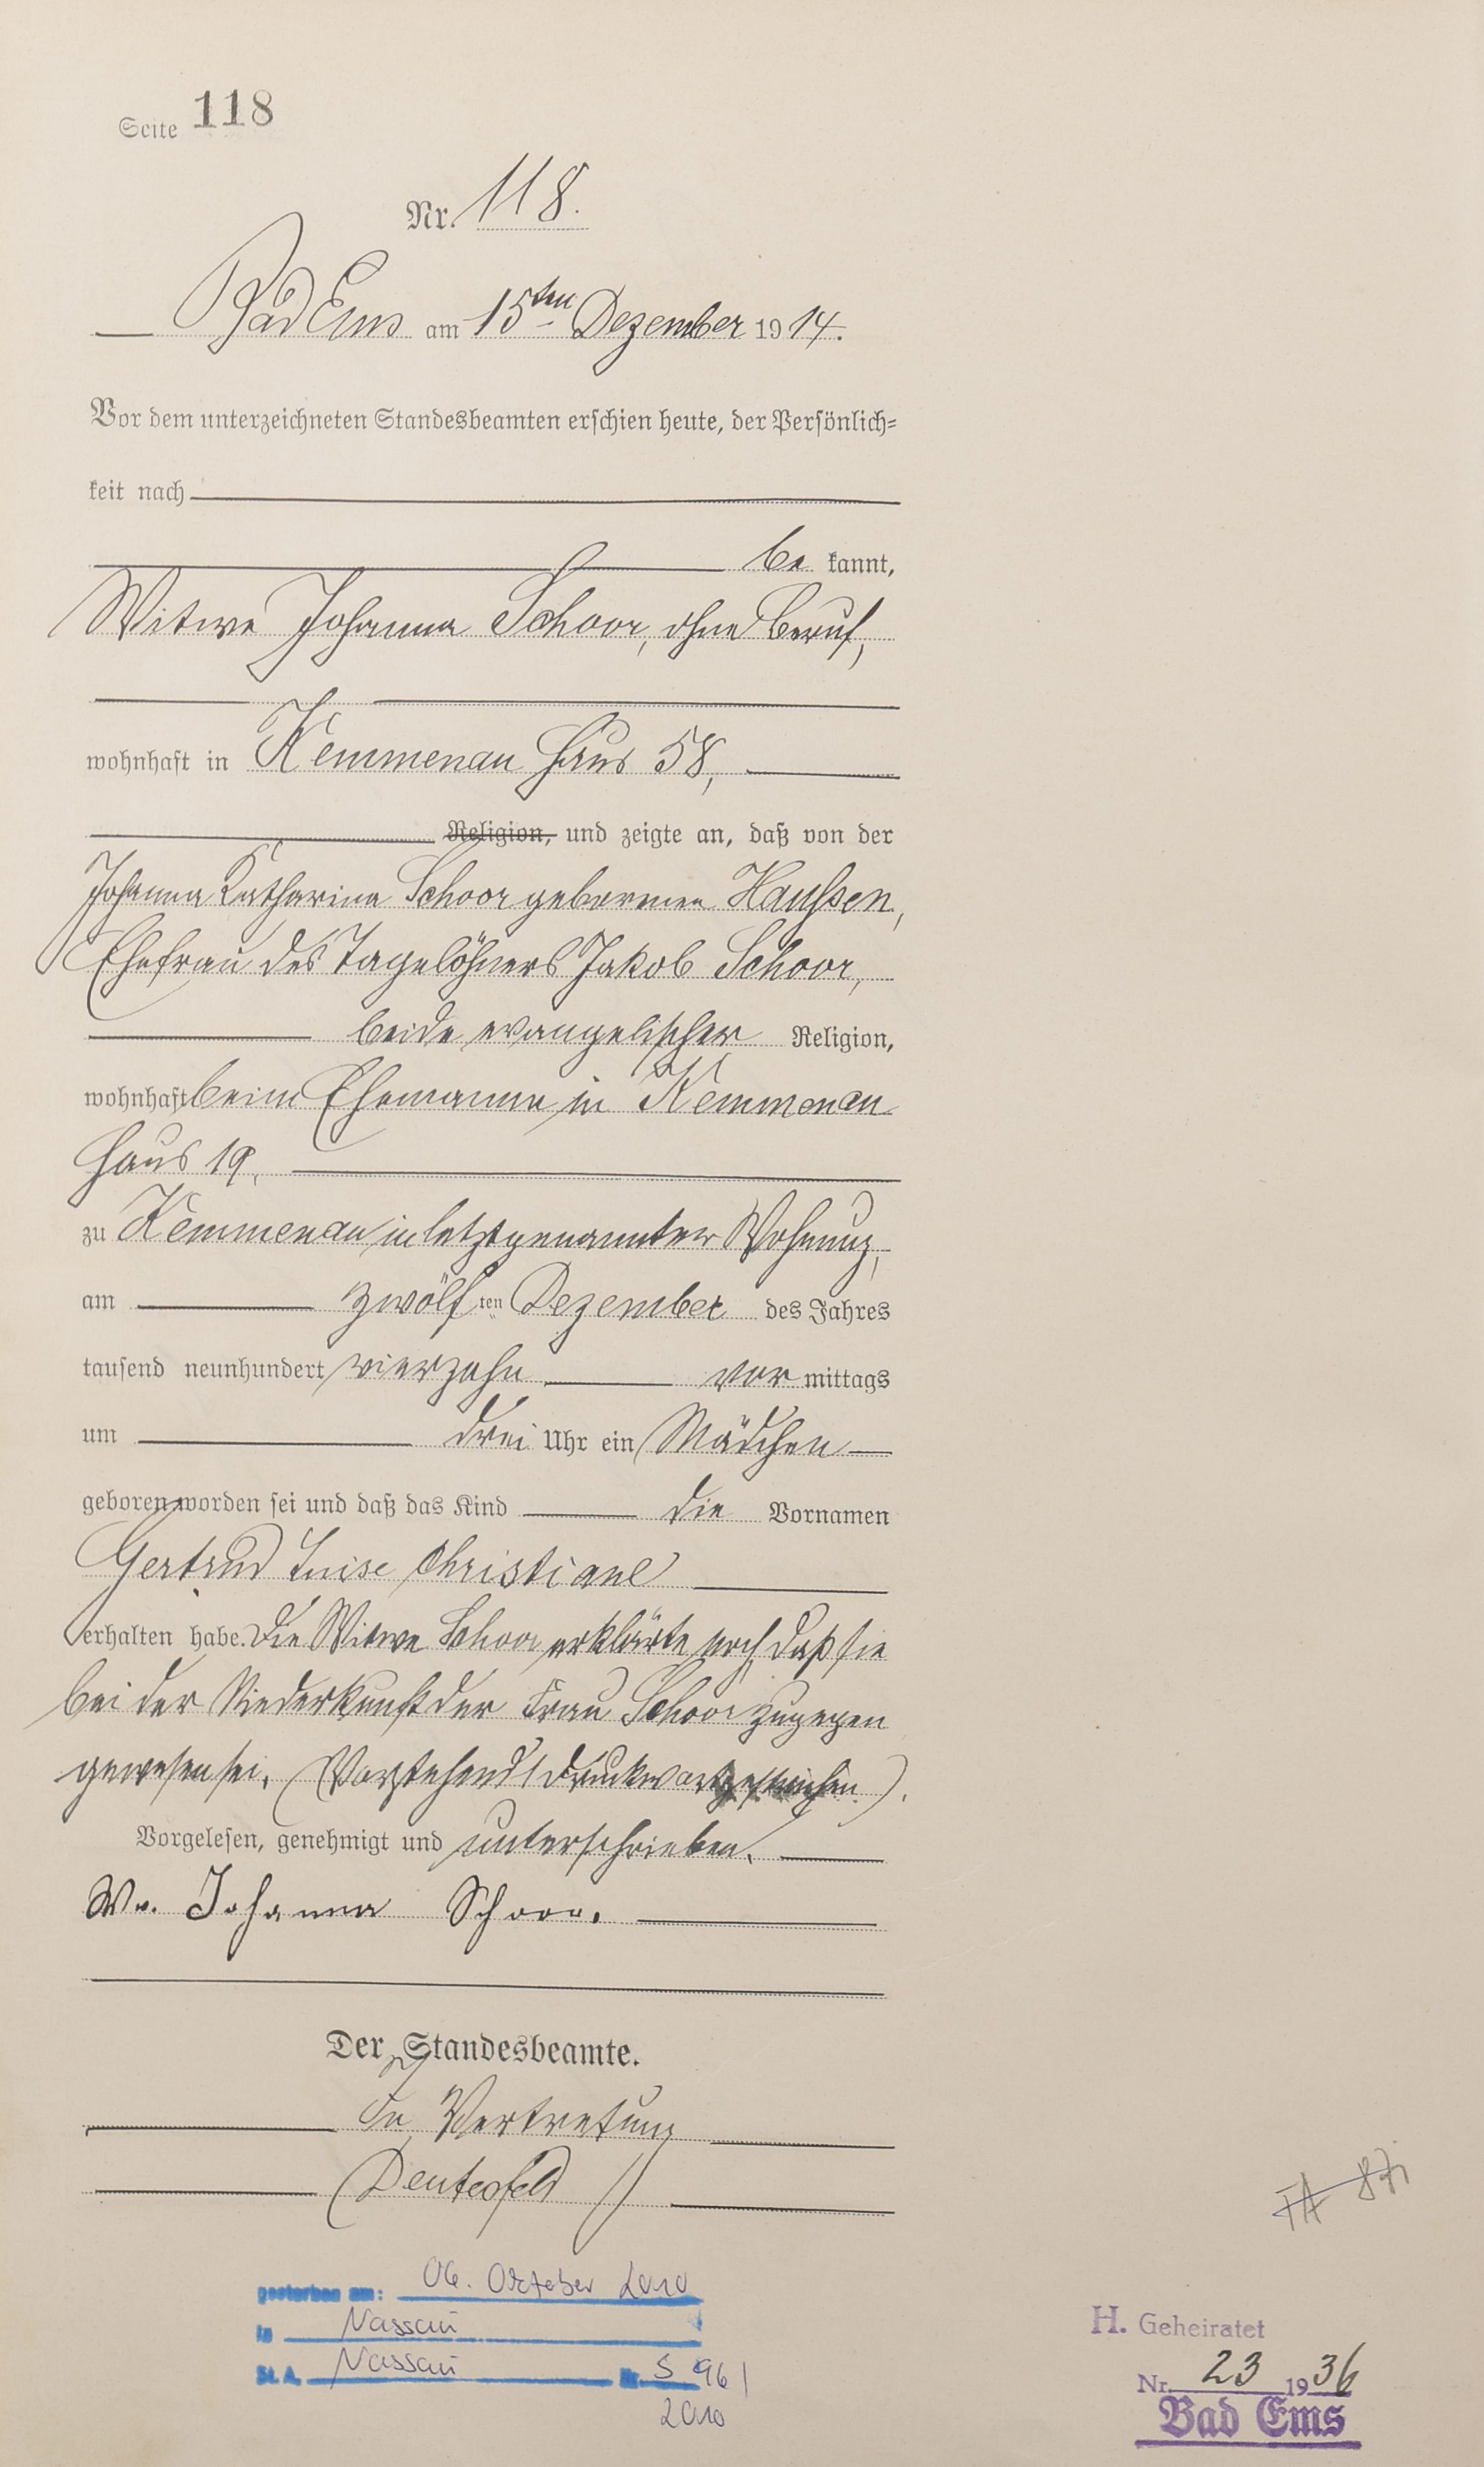 Seite 118
Nr. 118.
Bad Ems am 15ten Dezember 1914.
Vor dem unterzeichneten Standesbeamten erschien heute, der Persönlich=
keit nach
be kannt,
Witwe Johanna Schoor, ohne Beruf,
wohnhaft in Kemmenau Haus 58,
Religion, und zeigte an, daß von der
Johanna Katharina Schoor geborenen Haußen,
Ehefrau des Tagelöhners Jakob Schoor,
beide evangelischer Religion,
wohnhaft beim Ehemanne in Kemmenau
Haus 19,
zu Kemmenau in letztgenannter Wohnung,
am zwölf ten Dezember des Jahres
tausend neunhundert vierzehn vor mittags
um drei Uhr ein Mädchen
geboren worden sei und daß das Kind die Vornamen
Gertrud Luise Christiane
erhalten habe. Die Witwe Schoor erklärte noch, daß sie
bei der Niederkunft der Frau Schoor zugegen
gewesen sei. (Vorstehend 1 Druckwort gestrichen).
Vorgelesen, genehmigt und unterschrieben.
Ww. Johanna Schoor.
Der Standesbeamte.
In Vertretung
gestorben am: 06. Oktober 2010
in Nassau
St. A. Nassau Nr. S 96/
2010
H. Geheiratet
Nr. 23 1936
Bad Ems